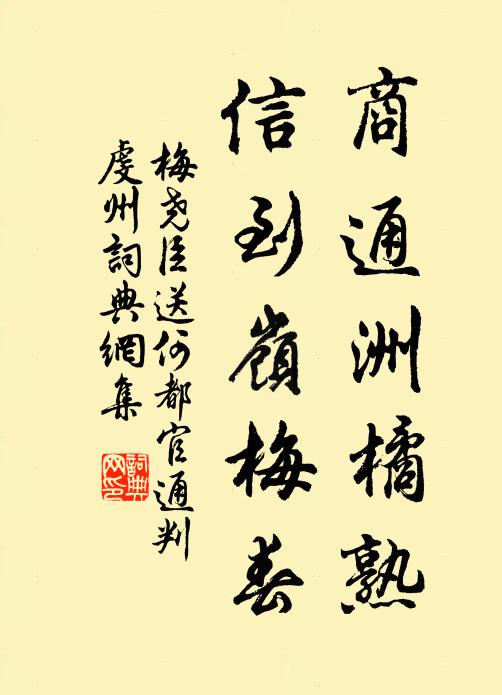 商通洲橘熟
信到嶺梅春
梅堯臣送何都官通判
虔州詞典網集
詞典
网印